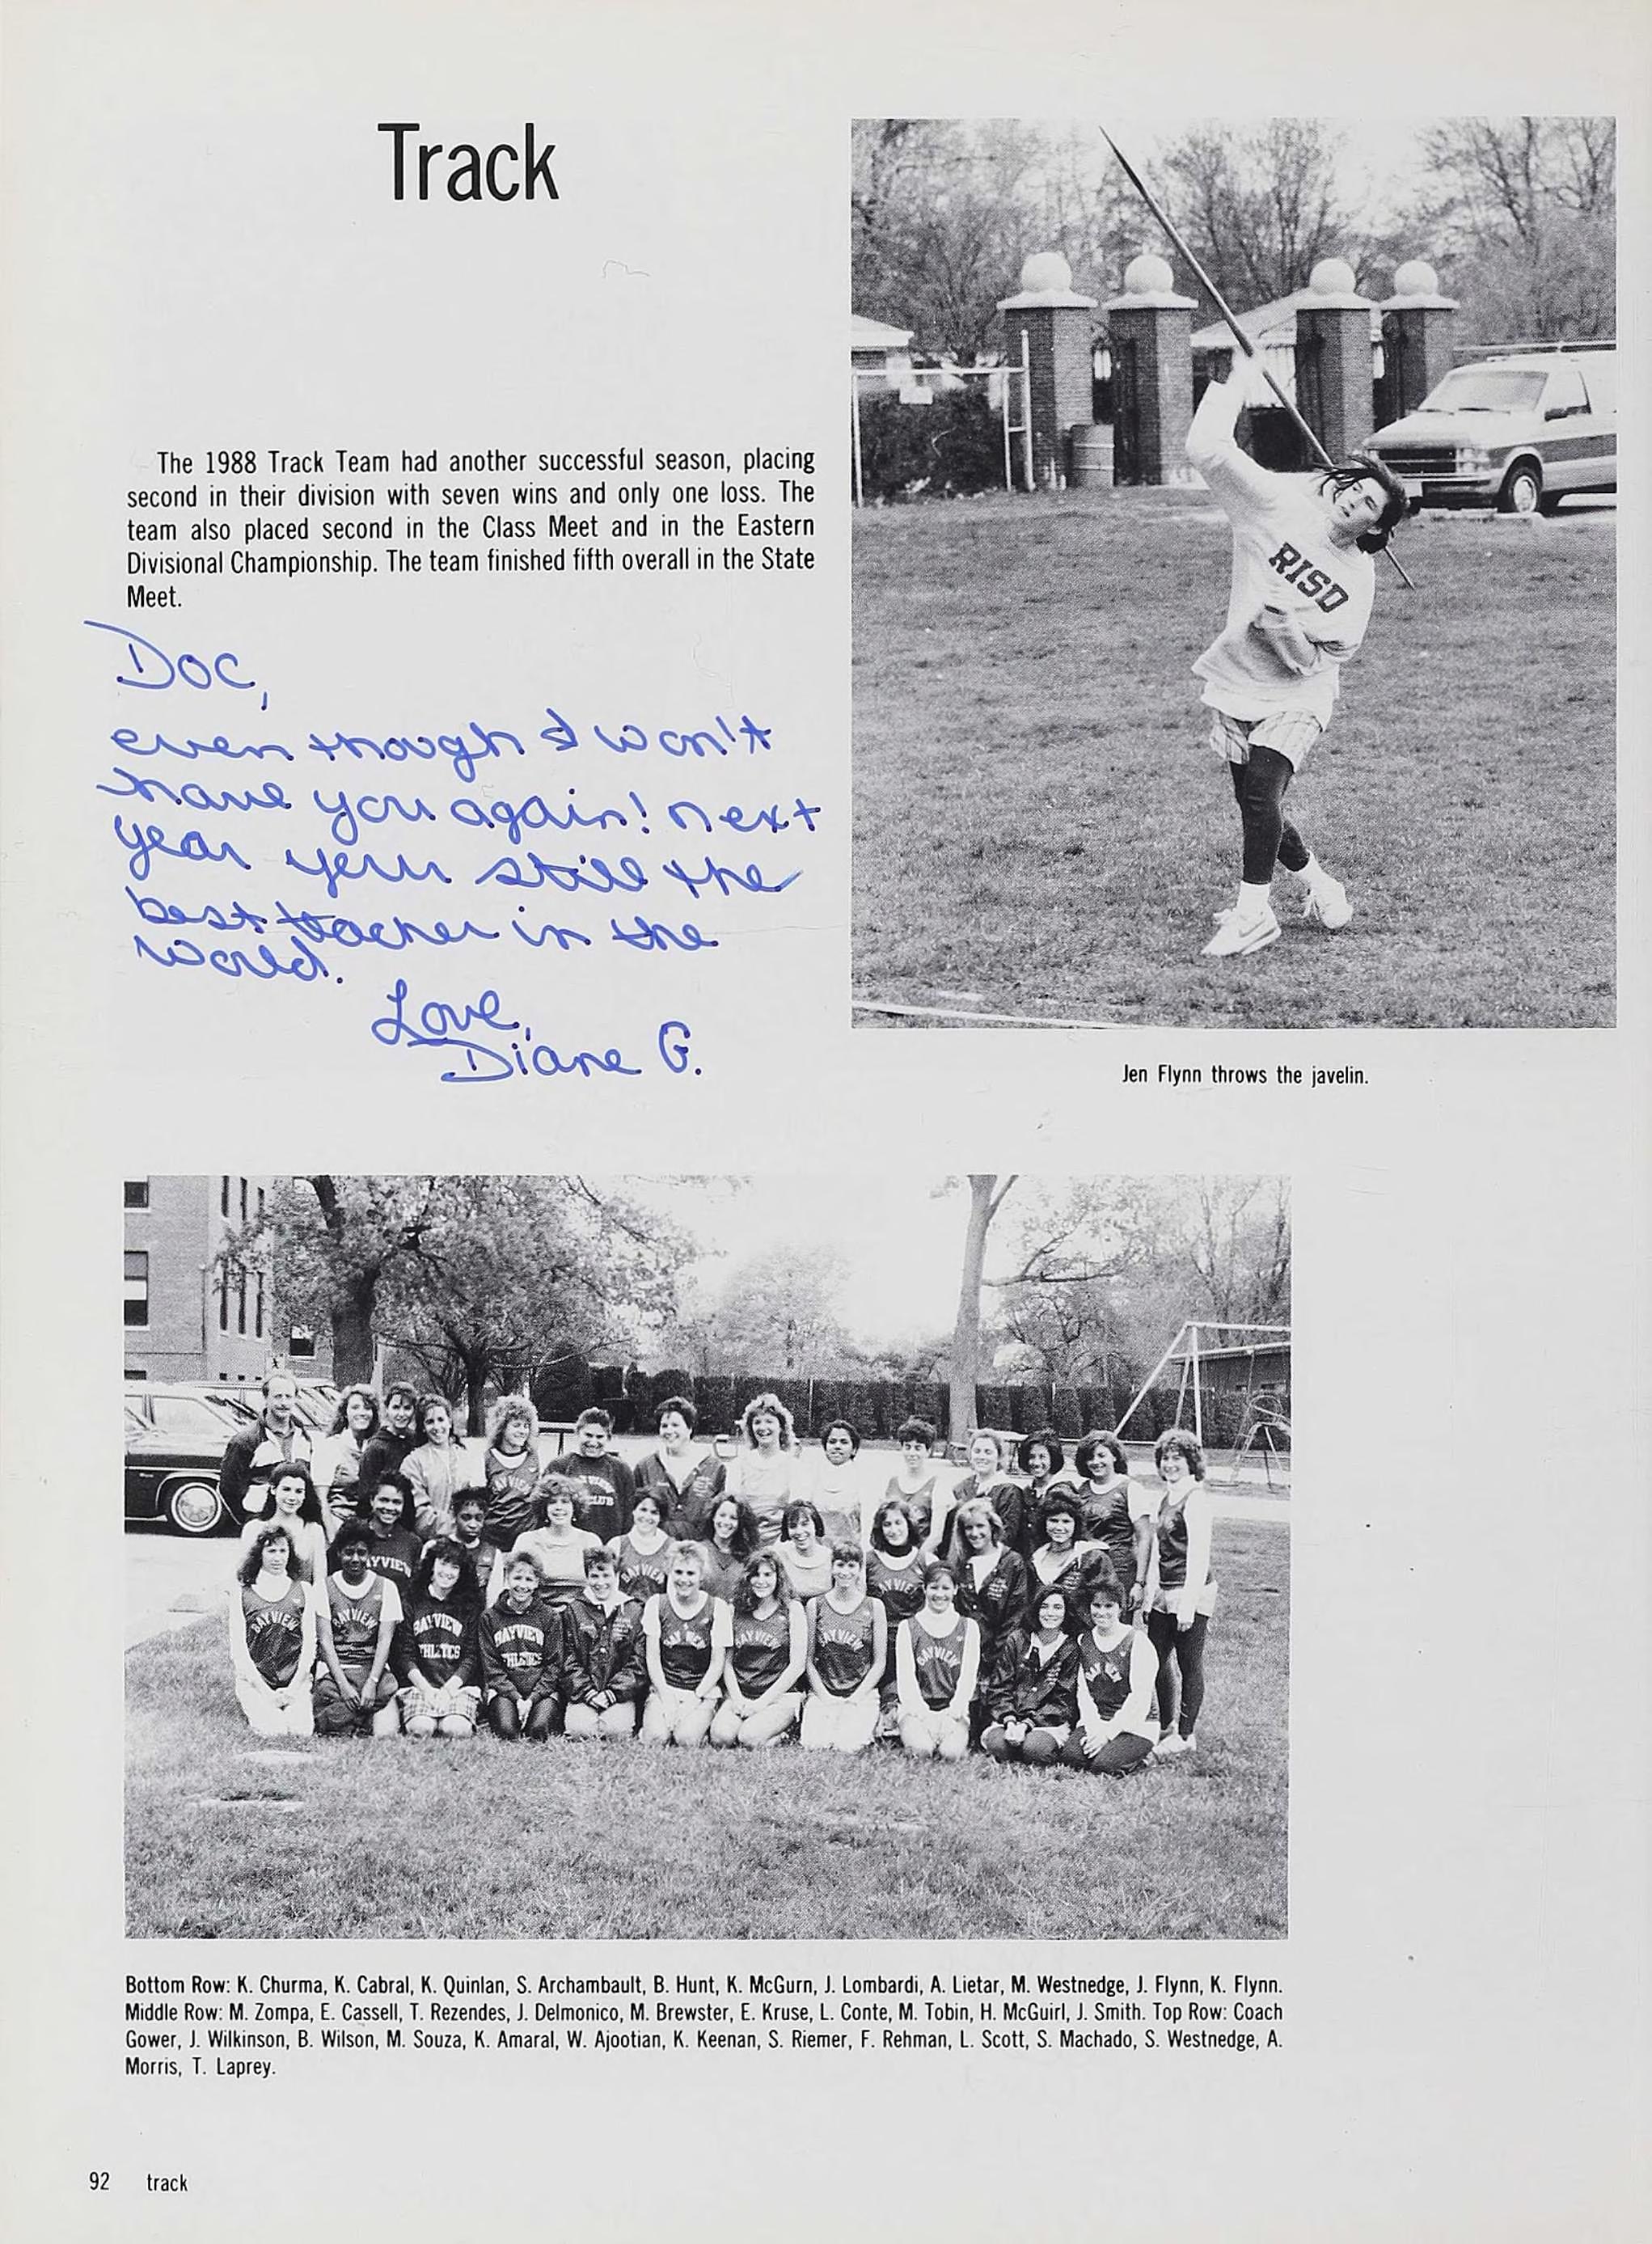 Track
The 1988 Track Team had another successful season, placing
second in their division with seven wins and only one loss. The
team also placed second in the Class Meet and in the Eastern
Divisional Championship. The team finished fifth overall in the State
Meet.
Doc,
even though I won't
have you again! next
year your still the
best teacher in the
world.
Love,
Diane G.
RISD
Jen Flynn throws the javelin.
BAYVIEW
BAYVIEW
BAYVIEW
BAYVIEW
ATHLETICS
BAYVIEW
ATHLETICS
BAYVIEW
BAYVIEW
BAYVIEW
BAYVIEW
Bottom Row: K. Churma, K. Cabral, K. Quinlan, S. Archambault, B. Hunt, K. McGurn, J. Lombardi, A. Lietar, M. Westnedge, J. Flynn, K. Flynn.
Middle Row: M. Zompa, E. Cassell, T. Rezendes, J. Delmonico, M. Brewster, E. Kruse, L. Conte, M. Tobin, H. McGuirl, J. Smith. Top Row: Coach
Gower, J. Wilkinson, B. Wilson, M. Souza, K. Amaral, W. Ajootian, K. Keenan, S. Riemer, F. Rehman, L. Scott, S. Machado, S. Westnedge, A.
Morris, T. Laprey.
92 track